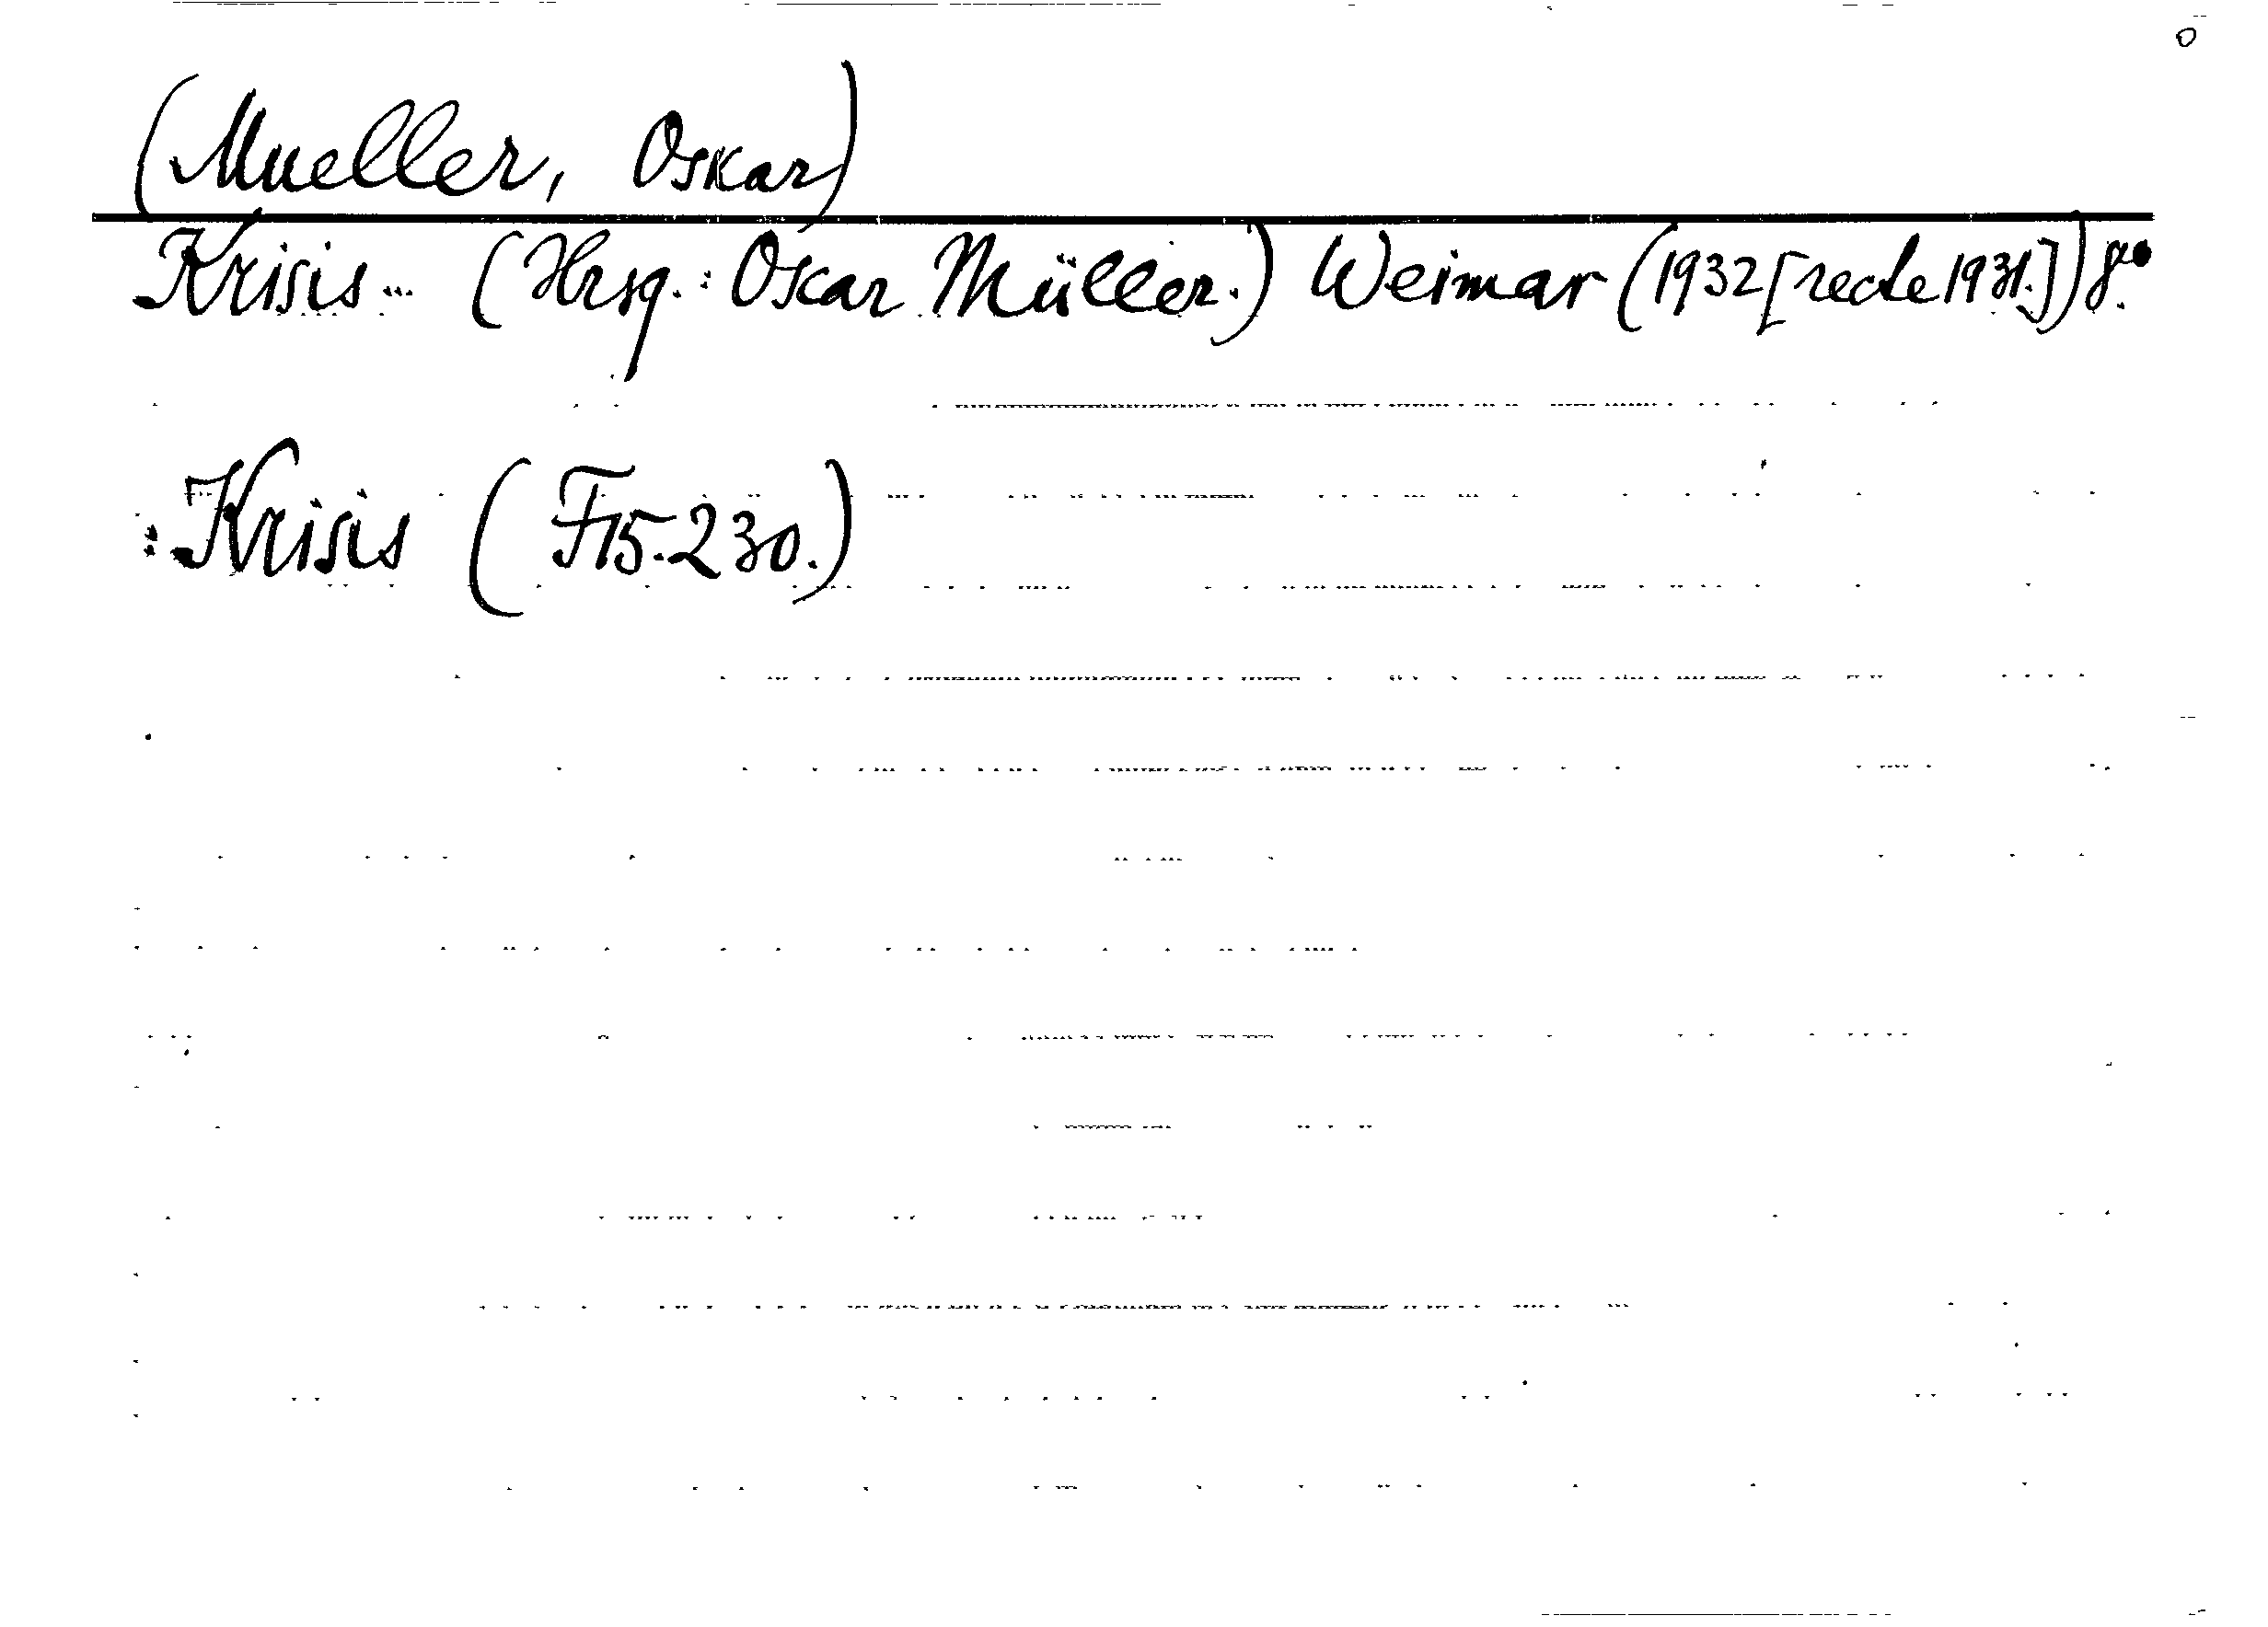 (Mueller, Oskar)
Krisis... (Hrsg.: Oscar Müller.) Weimar (1932 [recte 1931.]) 8°.
: Krisis (F15.230.)